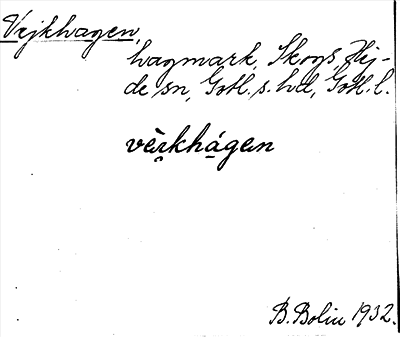 Vejkhagen,
hagmark, Skogs, Hej-
de sn, Gotl. s. hd, Gotl. l.
vèrkhágen
B. Bolin 1932.